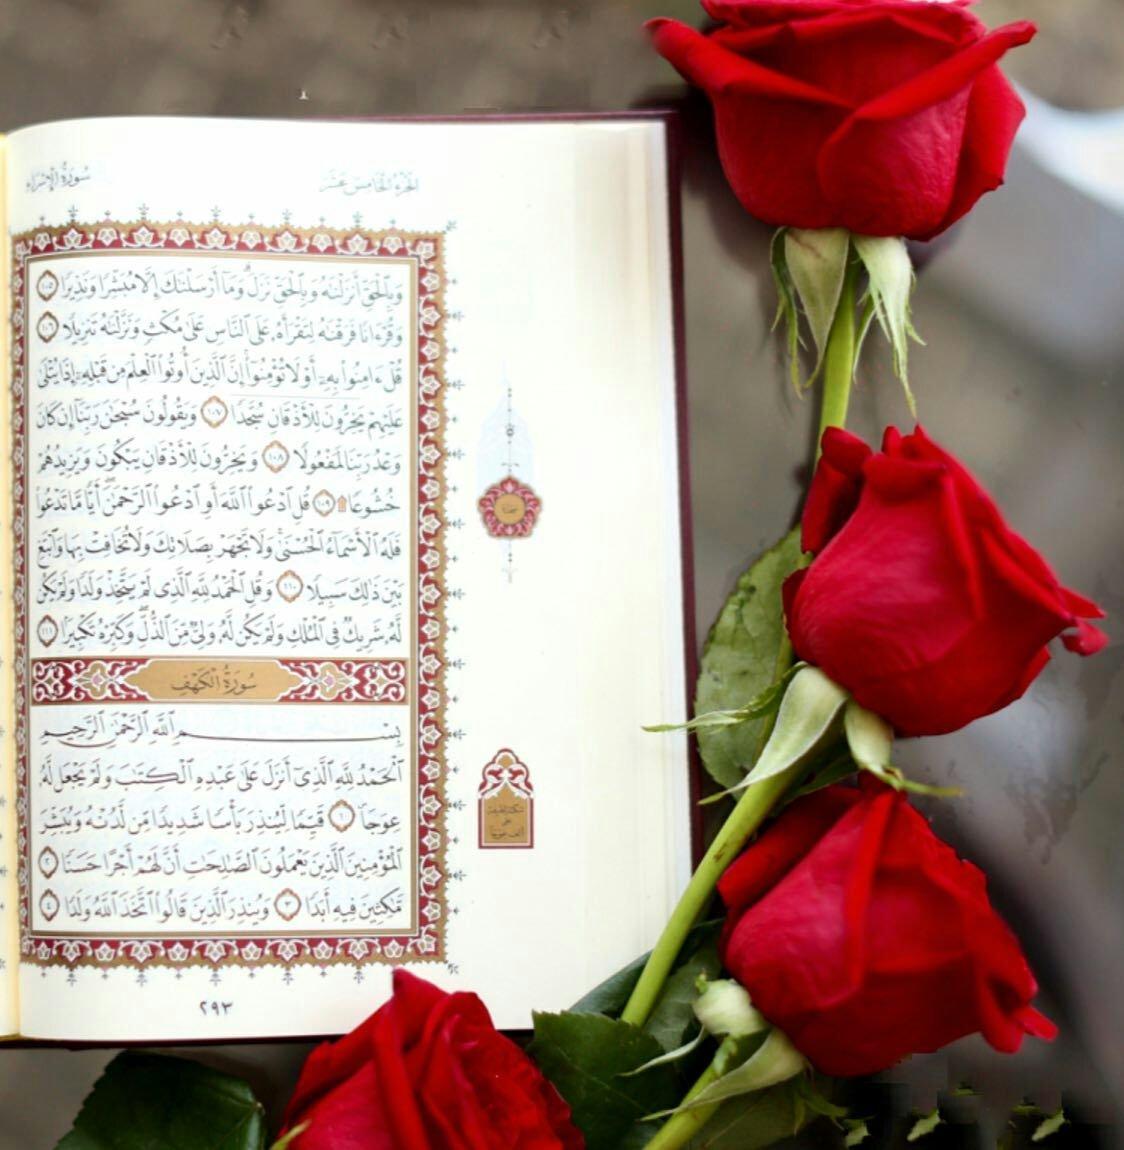 الجزء الخامس عشر
سورة الإسراء
وَبِٱلْحَقِّ أَنزَلْنَٰهُ وَبِٱلْحَقِّ نَزَلَ ۗ وَمَآ أَرْسَلْنَٰكَ إِلَّا مُبَشِّرًا وَنَذِيرًا ١٠٥
وَقُرْءَانًا فَرَقْنَٰهُ لِتَقْرَأَهُۥ عَلَى ٱلنَّاسِ عَلَىٰ مُكْثٍ وَنَزَّلْنَٰهُ تَنزِيلًا ١٠٦
قُلْ ءَامِنُوا۟ بِهِۦٓ أَوْ لَا تُؤْمِنُوٓا۟ ۚ إِنَّ ٱلَّذِينَ أُوتُوا۟ ٱلْعِلْمَ مِن قَبْلِهِۦٓ إِذَا يُتْلَىٰ
عَلَيْهِمْ يَخِرُّونَ لِلْأَذْقَانِ سُجَّدًا ١٠٧ وَيَقُولُونَ سُبْحَٰنَ رَبِّنَآ إِن كَانَ
وَعْدُ رَبِّنَا لَمَفْعُولًا ١٠٨ وَيَخِرُّونَ لِلْأَذْقَانِ يَبْكُونَ وَيَزِيدُهُمْ
خُشُوعًا ۩ ١٠٩ قُلِ ٱدْعُوا۟ ٱللَّهَ أَوِ ٱدْعُوا۟ ٱلرَّحْمَٰنَ ۖ أَيًّا مَّا تَدْعُوا۟
فَلَهُ ٱلْأَسْمَآءُ ٱلْحُسْنَىٰ ۚ وَلَا تَجْهَرْ بِصَلَاتِكَ وَلَا تُخَافِتْ بِهَا وَٱبْتَغِ
بَيْنَ ذَٰلِكَ سَبِيلًا ١١٠ وَقُلِ ٱلْحَمْدُ لِلَّهِ ٱلَّذِى لَمْ يَتَّخِذْ وَلَدًا وَلَمْ يَكُن
لَّهُۥ شَرِيكٌ فِى ٱلْمُلْكِ وَلَمْ يَكُن لَّهُۥ وَلِىٌّ مِّنَ ٱلذُّلِّ ۖ وَكَبِّرْهُ تَكْبِيرًۢا ١١١
سورة الكهف
بِسْمِ ٱللَّهِ ٱلرَّحْمَٰنِ ٱلرَّحِيمِ
ٱلْحَمْدُ لِلَّهِ ٱلَّذِىٓ أَنزَلَ عَلَىٰ عَبْدِهِ ٱلْكِتَٰبَ وَلَمْ يَجْعَل لَّهُۥ
عِوَجَاۜ ١ قَيِّمًا لِّيُنذِرَ بَأْسًا شَدِيدًا مِّن لَّدُنْهُ وَيُبَشِّرَ
ٱلْمُؤْمِنِينَ ٱلَّذِينَ يَعْمَلُونَ ٱلصَّٰلِحَٰتِ أَنَّ لَهُمْ أَجْرًا حَسَنًا ٢
مَّٰكِثِينَ فِيهِ أَبَدًا ٣ وَيُنذِرَ ٱلَّذِينَ قَالُوا۟ ٱتَّخَذَ ٱللَّهُ وَلَدًا ٤
سجدة
سكتة لطيفة
على
ألف عوجا
٢٩٣